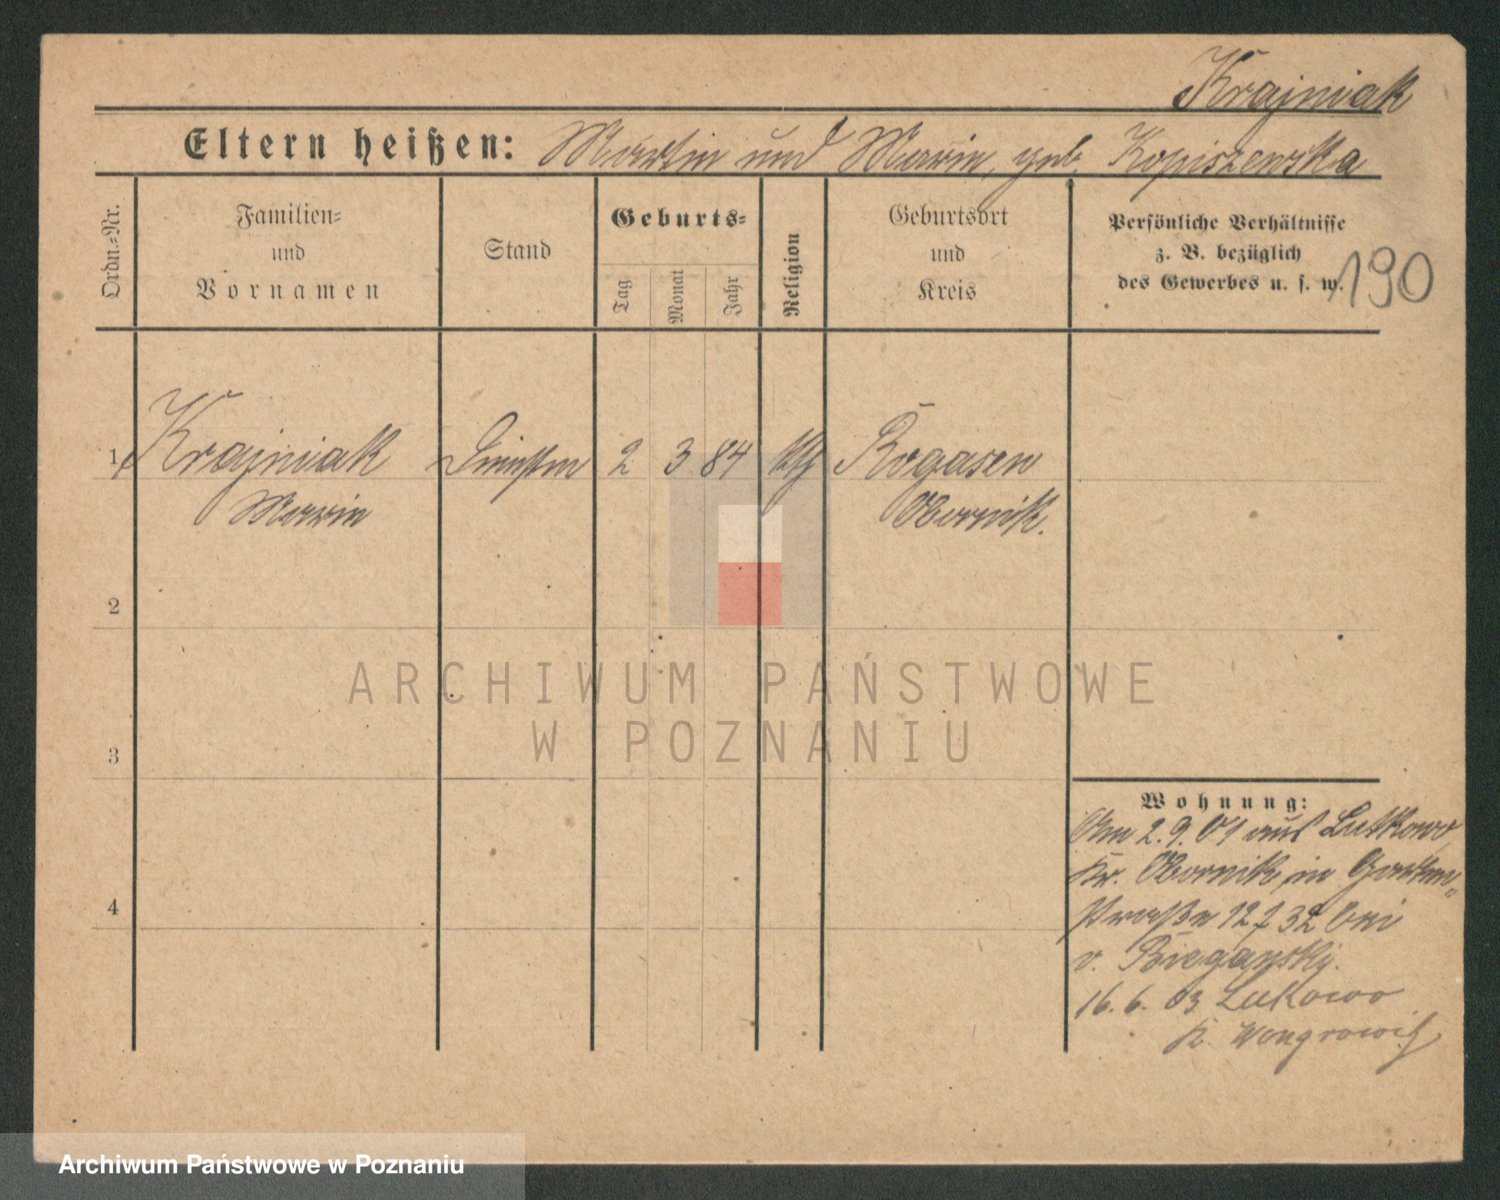 Krajniak
Eltern heißen: Martin und Marie, geb. Kopiszewska
Ordn.-Nr.
Familien-
und
Vornamen
Stand
Geburts-
Tag
Monat
Jahr
Religion
Geburtsort
und
Kreis
Persönliche Verhältnisse
z. B. bezüglich
des Gewerbes u. s. w.
190
1 Krajniak 2 3 84 Rogasen
Marie Obornik.
2
3
4
ARCHIWUM PAŃSTWOWE
W POZNANIU
Wohnung:
Am 2.9.01 aus Lutkowo
Kr. Obornik in Garten-
straße 12 I 32 bei
v. Biegansky.
16.6.03 Lukowo
K. Wongrowitz
Archiwum Państwowe w Poznaniu